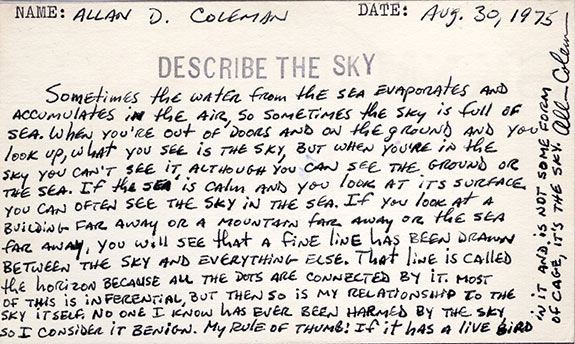 NAME: ALLAN D. COLEMAN DATE: AUG. 30, 1975
DESCRIBE THE SKY
SOMETIMES the WATER FROM the SEA EVAPORATES AND
ACCUMULATES IN the AIR, SO SOMETIMES the SKY IS FULL OF
SEA. WHEN YOU'RE OUT OF DOORS AND ON the GROUND AND YOU
LOOK UP, WHAT YOU SEE IS the SKY, BUT WHEN YOU'RE IN the
SKY YOU CAN'T SEE IT, ALTHOUGH YOU CAN SEE the GROUND OR
THE SEA. IF the SEA IS CALM AND YOU LOOK AT ITS SURFACE
YOU CAN OFTEN SEE the SKY IN the SEA. IF YOU LOOK AT A
BUILDING FAR AWAY OR A MOUNTAIN FAR AWAY OR the SEA
FAR AWAY, YOU WILL SEE that A FINE LINE HAS BEEN DRAWN
BETWEEN the SKY AND EVERYTHING ELSE. THAT LINE IS CALLED
the HORIZON BECAUSE ALL the DOTS ARE CONNECTED BY IT. MOST
OF THIS IS INFERENTIAL, BUT THEN SO IS MY RELATIONSHIP TO the
SKY ITSELF. NO ONE I KNOW HAS EVER BEEN HARMED BY the SKY
SO I CONSIDER IT BENIGN. MY RULE OF THUMB: IF IT HAS A LIVE BIRD
IN IT AND IS NOT SOME FORM
OF CAGE, IT'S the SKY. Allan Coleman